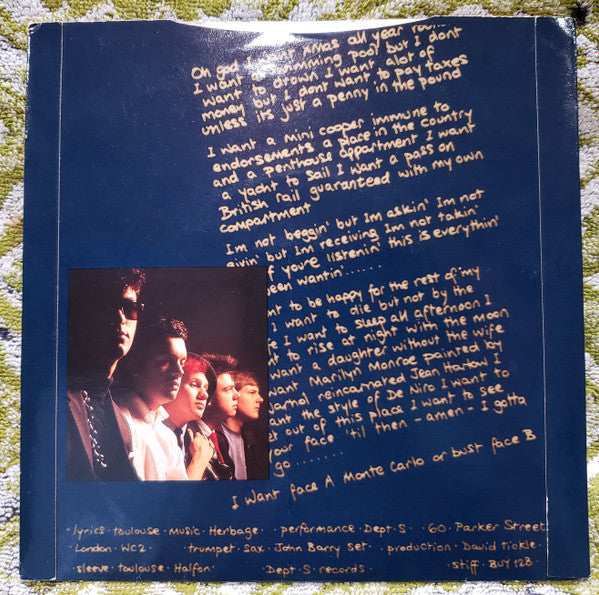 Oh god I want xmas all year roun
I want a swimming pool but I dont
want to drown I want alot of
money but I dont want to pay taxes
unless its just a penny in the pound
I want a mini cooper immune to
endorsements a place in the country
and a penthouse appartment I want
a yacht to sail I want a pass on
British rail guaranteed with my own
compartment
I'm not beggin' but Im askin' Im not
givin' but Im receiving Im not takin'
if youre listenin' this is everythin'
been wantin'......
to be happy for the rest of my
I want to die but not by the
I want to sleep all afternoon I
to rise at night with the moon
want a daughter without the wife
want Marilyn Monroe painted by
Warhol reincarnated Jean Harlow I
want the style of De Niro I want to
get out of this place I want to see
your face 'til then - amen - I gotta
go........
I Want face A Monte Carlo or bust face B
lyrics · toulouse · music · Herbage · performance · Dept · S · 60 · Parker Street
London · WC2 · trumpet · sax · John Barry Set · production · David Tickle ·
sleeve · toulouse · Halfon · Dept · S · records · stiff · BUY 128 ·